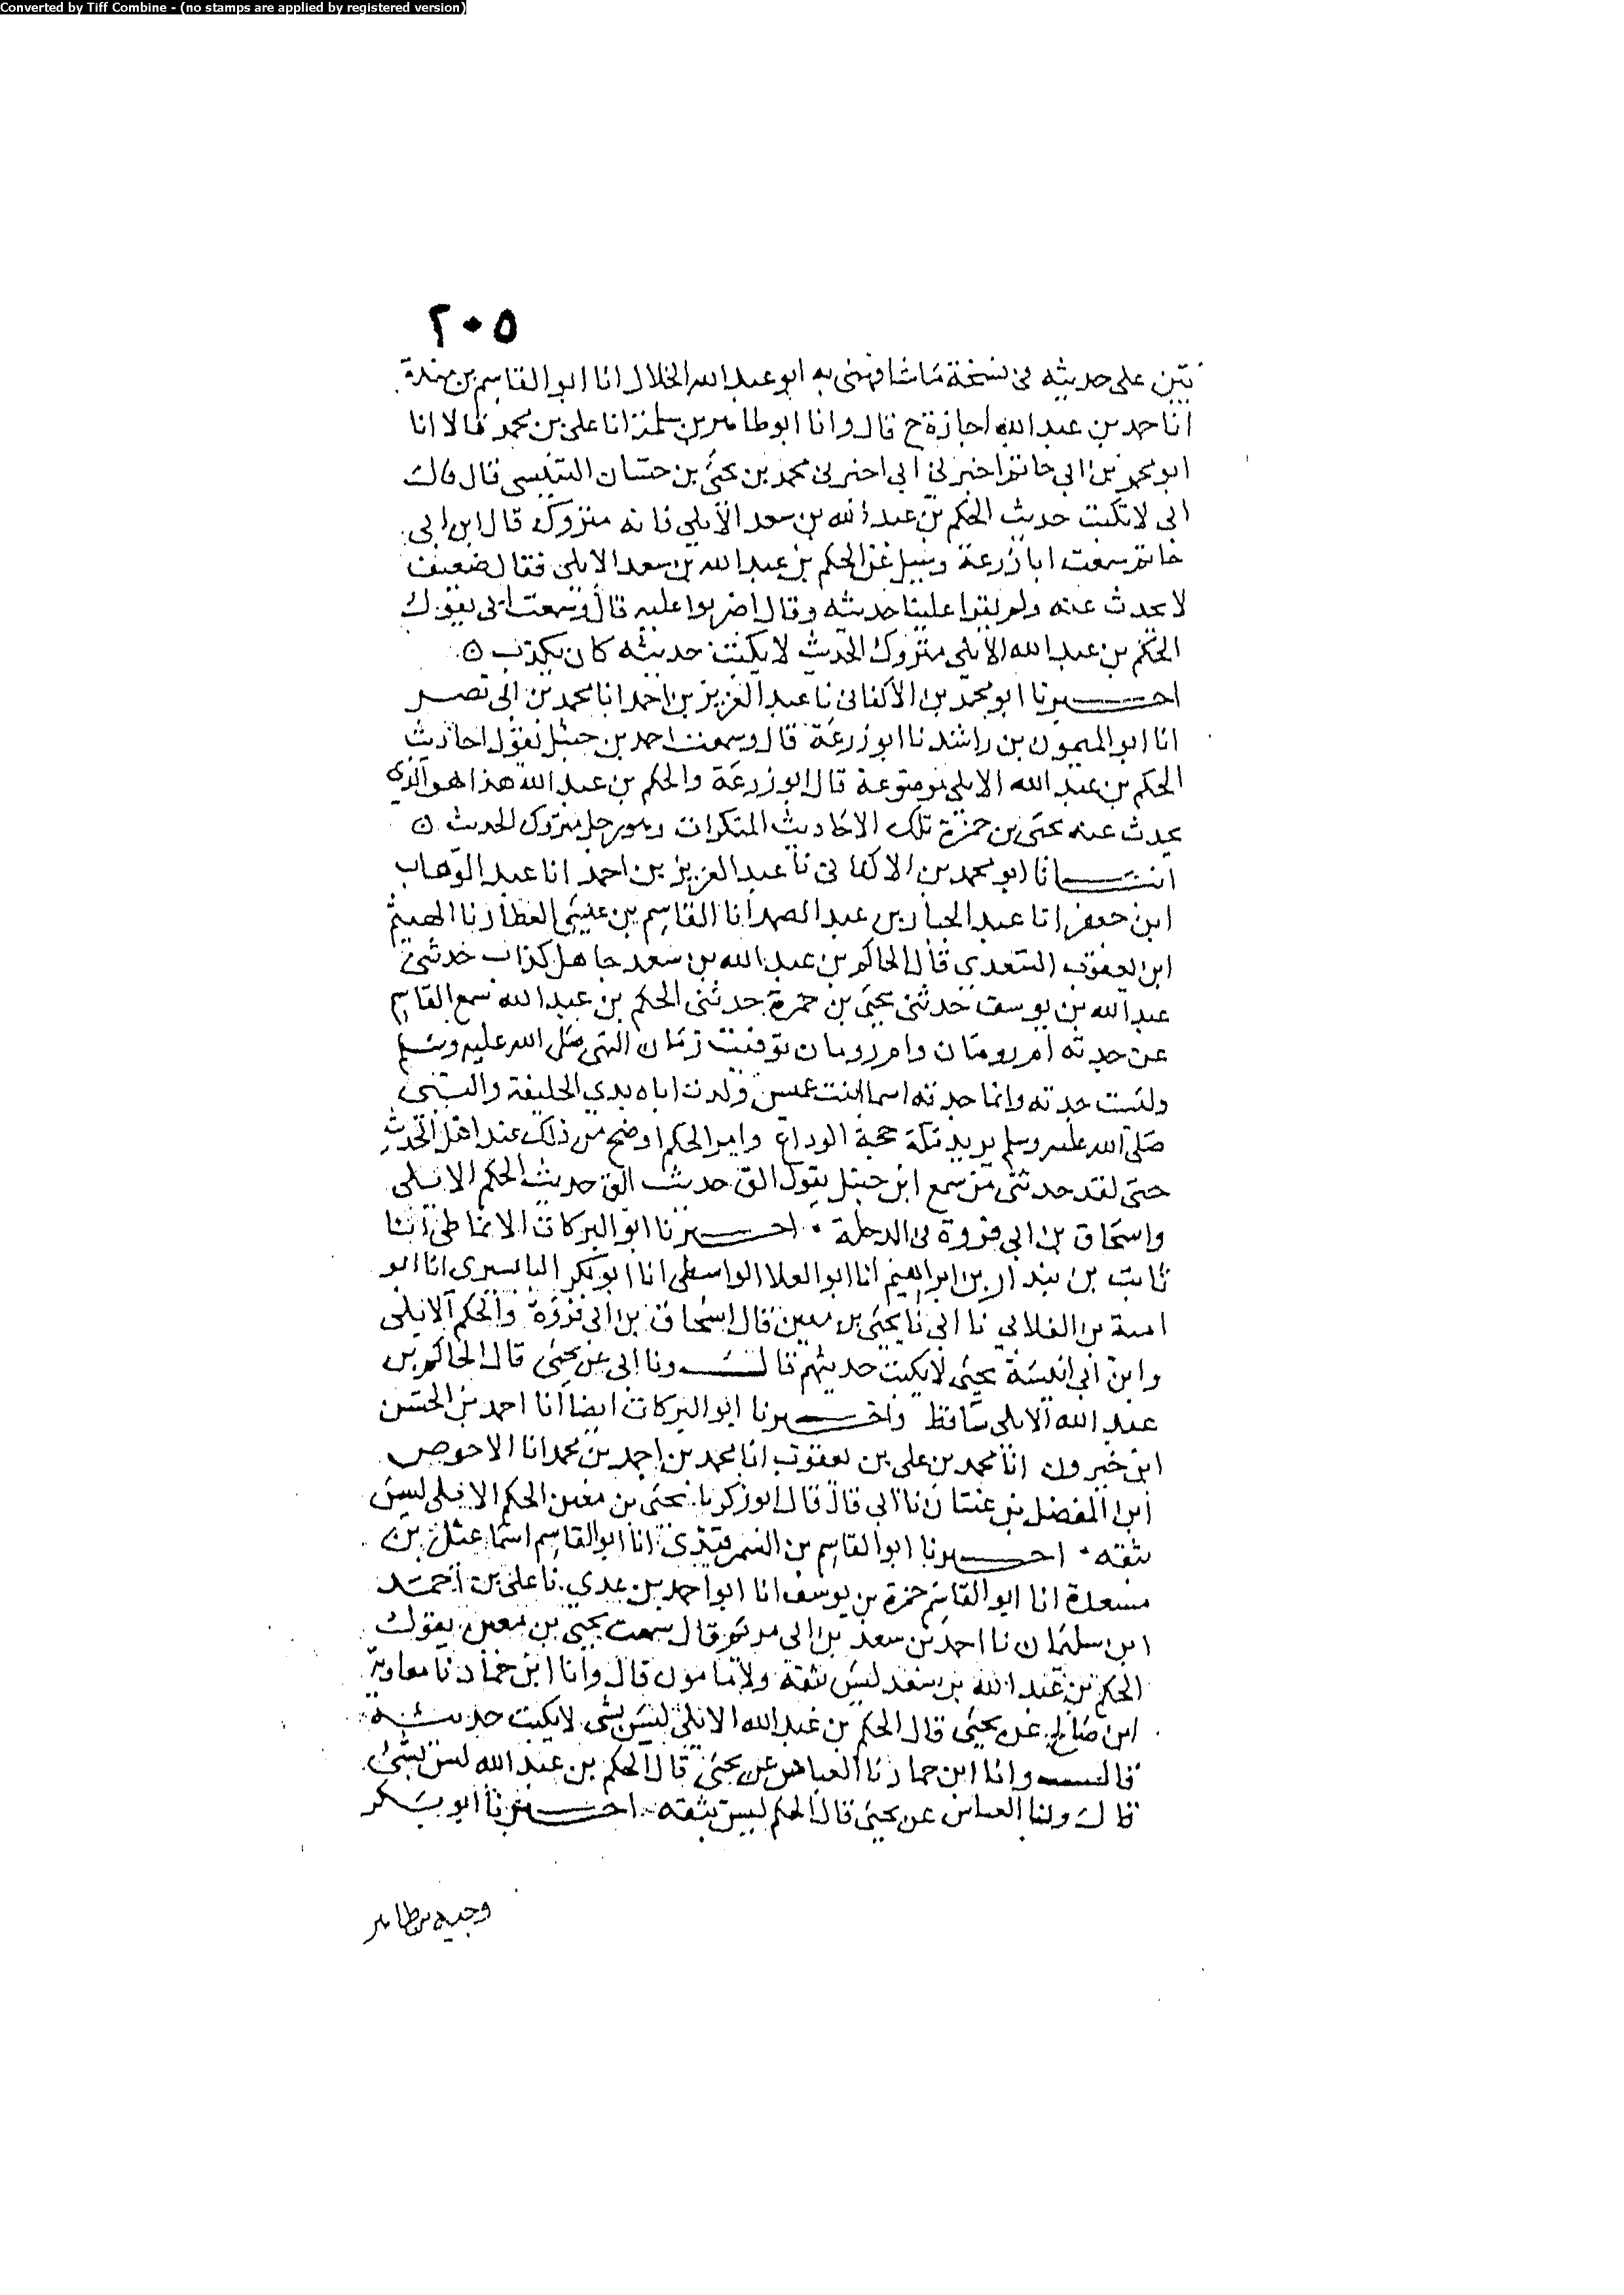 Converted by Tiff Combine - (no stamps are applied by registered version)
٢٠٥
بين على حديثه في نسخة ما شافهني به ابو عبد الله الخلال انا ابو القاسم بن مندة
انا حمد بن عبد الله اجازة ح قال وانا ابو طاهر بن سلمة انا علي بن محمد قالا انا
ابو محمد بن ابي حاتم اخبرني ابي اخبرني محمد بن يحيى بن حسان التنيسي قال قال
ابي لا تكتب حديث الحكم بن عبد الله بن سعد الأيلي فانه متروك قال ابن ابي
حاتم سمعت ابا زرعة وسيل عن الحكم بن عبد الله بن سعد الايلي فقال ضعيف
لا يحدث عنه ولم يقرا علينا حديثه وقال اضربوا عليه قال وسمعت ابي يقول
الحكم بن عبد الله الأيلي متروك الحديث لا يكتب حديثه كان يكذب ه
اخبرنا ابو محمد بن الأكفاني نا عبد العزيز بن احمد انا محمد بن ابي نصر
انا ابو الميمون بن راشد نا ابو زرعة قال وسمعت احمد بن حنبل يقول احاديث
الحكم بن عبد الله الايلي موضوعة قال ابو زرعة والحكم بن عبد الله هذا هو الذي
يحدث عنه يحيى بن حمزة تلك الاحاديث المنكرات وهو رجل متروك الحديث ه
انبانا ابو محمد بن الاكفاني نا عبد العزيز بن احمد انا عبد الوهاب
ابن جعفر انا عبد الجبار بن عبد الصمد انا القاسم بن عيسى العطار نا
ابن يعقوب السعدي قال الحاكم بن عبد الله بن سعد جاهل كذاب حدثني
عبد الله بن يوسف حدثني يحيى بن حمزة حدثني الحكم بن عبد الله سمع القاسم
عن جدته ام رومان وام رومان توفيت زمان النبي صلى الله عليه وسلم
وليست جدته وانما جدته اسما بنت عميس ولدت اباه بذي الحليفة والنبي
صلى الله عليه وسلم يريد مكة حجة الوداع وامر الحكم اوضح من ذلك عند اهل الحديث
حتى لقد حدثني من سمع ابن حنبل يقول الق حديث الق حديث الحكم الايلي
واسحاق بن ابي فروة في الدجلة . اخبرنا ابو البركات الانماطي انبا
ثابت بن بندار بن ابراهيم انا ابو العلا الواسطي انا ابو بكر البابسيري انا ابو
امية بن الغلابي نا ابي نا يحيى بن معين قال اسحاق بن ابي فروة والحكم الايلي
وابن ابي انيسة يحيى لا يكتب حديثهم قال ونا ابي عن يحيى قال الحاكم بن
عبد الله الايلي ساقط واخبرنا ابو البركات ايضا انا احمد بن الحسن
ابن خيرون انا محمد بن علي بن يعقوب انا محمد بن احمد بن محمد انا الاحوص
ابن المفضل بن غسان نا ابي قال قال ابو زكريا يحيى بن معين الحكم الايلي ليس
بثقه . اخبرنا ابو القاسم بن السمرقندي انا ابو القاسم اسماعيل بن
مسعدة انا ابو القاسم حمزة بن يوسف انا ابو احمد بن عدي نا علي بن احمد
ابن سليمان نا احمد بن سعد بن ابي مريم قال سمعت يحيى بن معين يقول
الحكم بن عبد الله بن سعد ليس بثقة ولا مامون قال وانا ابن حماد نا معاوية
ابن صالح عن يحيى قال الحكم بن عبد الله الايلي ليس بشي لا يكتب حديثه
قال وانا ابن حماد نا العباس عن يحيى قال الحكم بن عبد الله ليس بشيء
قال ونا العباس عن يحيى قال الحكم ليس بثقه . اخبرنا ابو بكر
وجيه بن طاهر